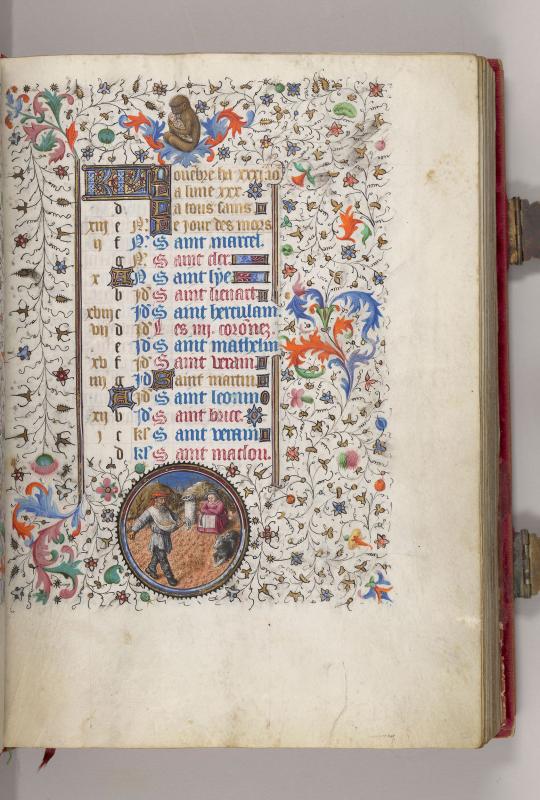 KL Nouebre ha xxx. io
La lune xxx.
d La tous sains
xiii e N' Le jour des mors
ii f N' Saint marcel.
g N' Saint cler.
x A N' Saint lye
b Jd' Saint lienart
xviii c Jd' Saint herculain
vii d Jd' Les iiii. coronez.
e Jd' Saint mathelin
xv f Jd' Saint verain
iiii g Jd' Saint martin
A Jd' Saint leonin
xii b Jd' Saint brice.
i c kl' Saint verain
d kl' Saint maclou.